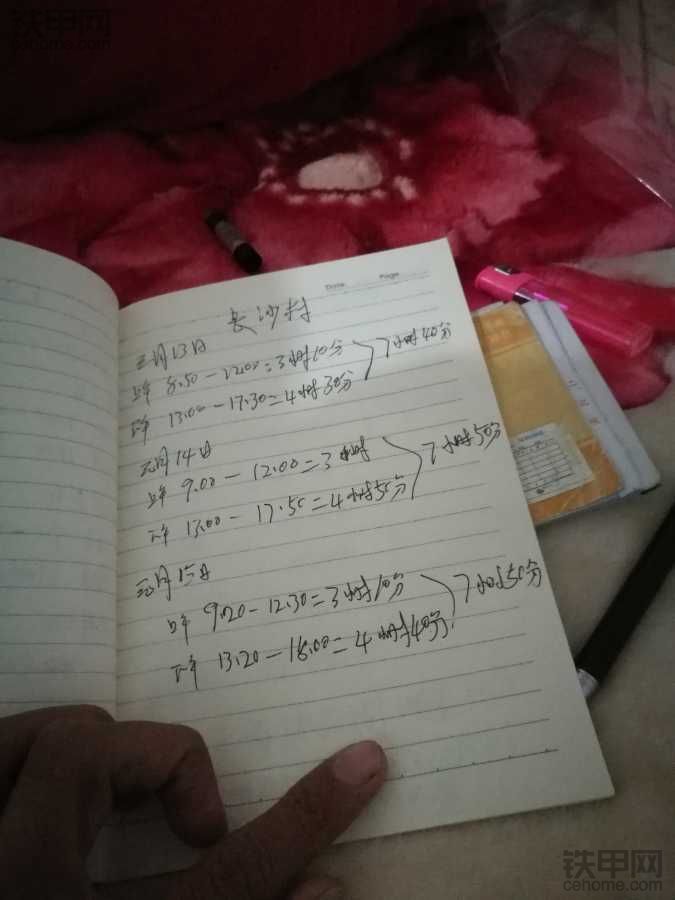 铁甲网
cehome.com
Date Page
长沙村
三月13日
上午 8.50 — 12.00 = 3小时10分 7小时40分
下午 13.00 — 17.30 = 4小时30分
三月14日
上午 9.00 — 12.00 = 3小时 7小时50分
下午 13.00 — 17.50 = 4小时50分
三月15日
上午 9.20 — 12.30 = 3小时10分 7小时50分
下午 13.20 — 18.00 = 4小时40分
铁甲网
cehome.com